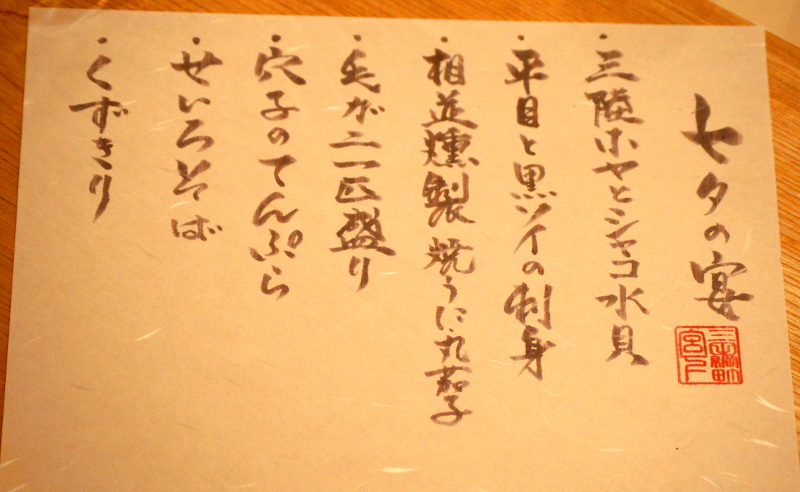 七夕の宴
・三陸ホヤとシャコ水貝
・平目と黒ソイの刺身
・相並燻製 焼うに 丸茄子
・毛が二一匹盛り
・穴子のてんぷら
・せいろそば
・くずきり